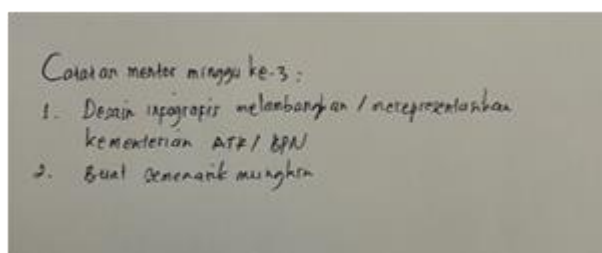 Catatan mentor minggu ke-3 :
1. Desain infografis melambangkan / merepresentasikan
kementerian ATR/ BPN
2. Buat semenarik mungkin